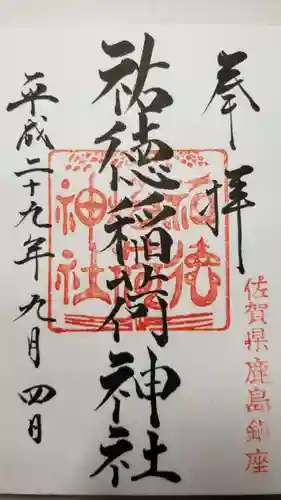 奉拝
佐賀県鹿島鎮座
祐徳稲荷神社
祐徳稲荷神社
平成二十九年九月四日